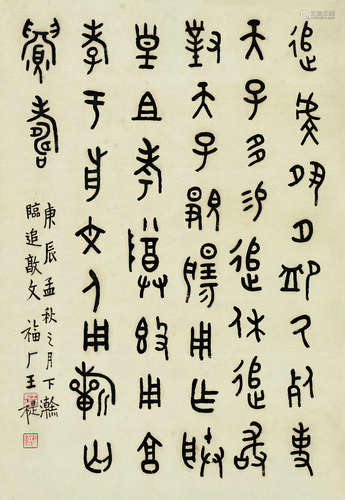 追虔夙夕卹氒死事
天子多易追休追敢
對天子覭揚用乍朕
皇且考𬯚𣪘用亯
孝于前文人用䣄匄
眉壽
庚辰孟秋之月下澣
臨追敦文 福厂王禔